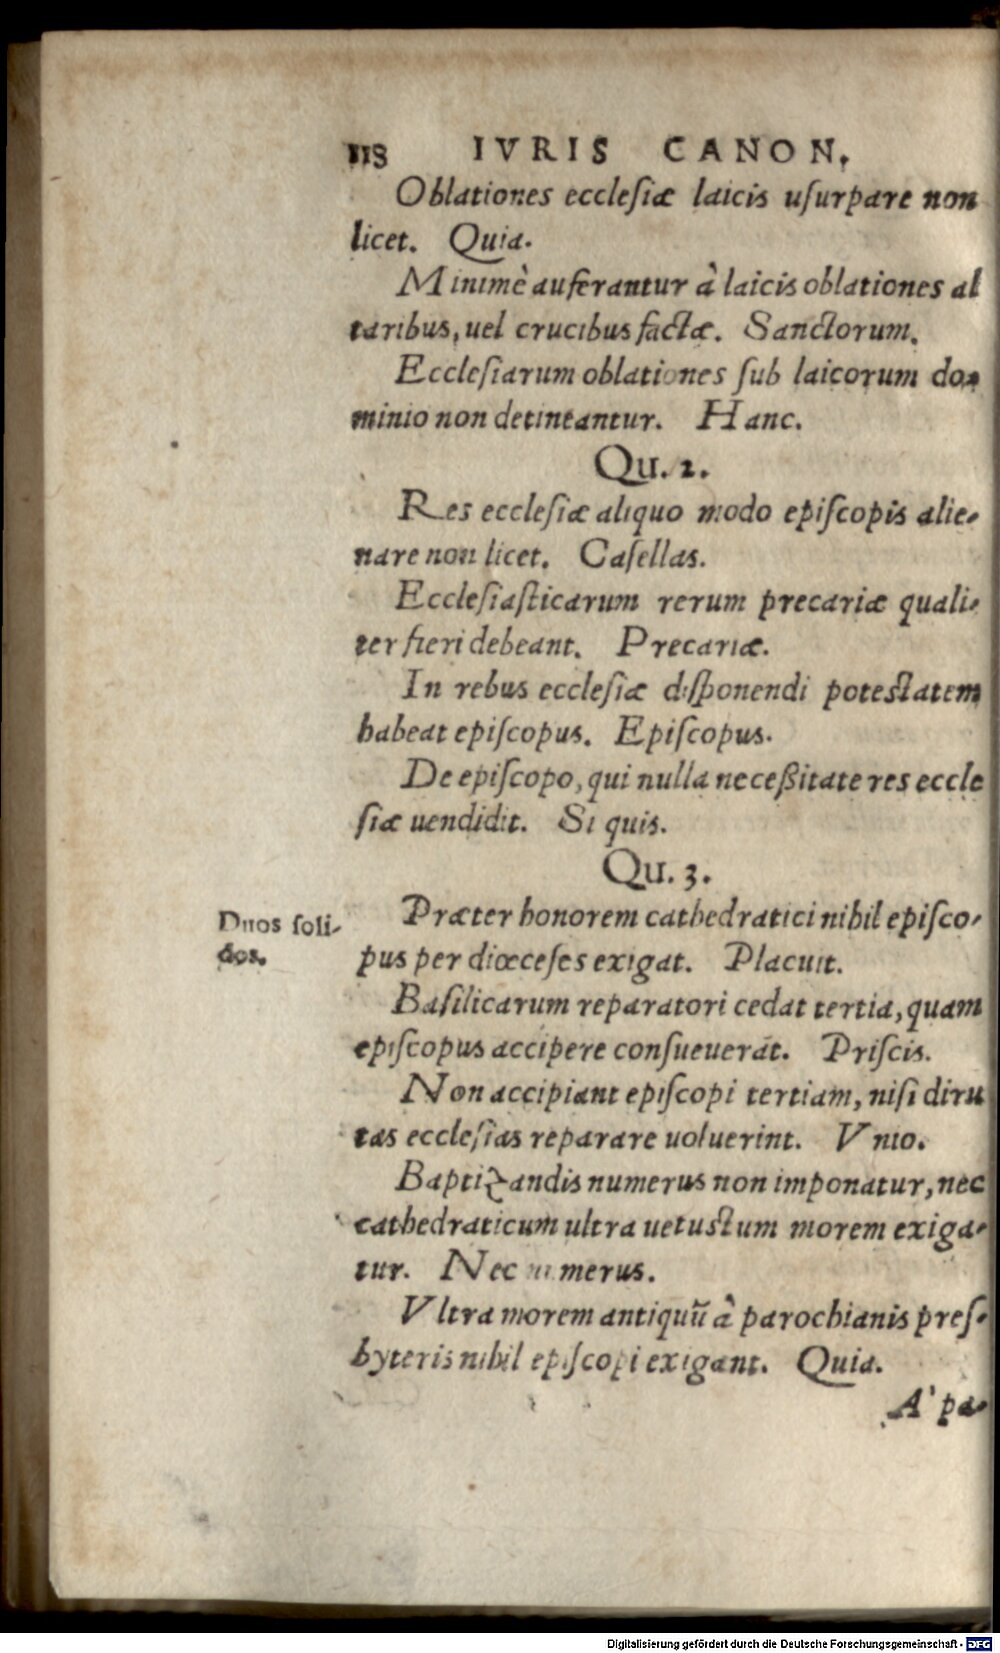 118 IVRIS CANON.
Oblationes ecclesiæ laicis uſurpare non
licet. Quia.
Minimè auferantur à laicis oblationes al
taribus, uel crucibus factæ. Sanctorum.
Eccleſiarum oblationes ſub laicorum do-
minio non detineantur. Hanc.
Qu. 2.
Res eccleſiæ aliquo modo epiſcopis alie-
nare non licet. Caſellas.
Eccleſiaſticarum rerum precariæ quali-
ter fieri debeant. Precariæ.
In rebus eccleſiæ diſponendi poteſtatem
habeat epiſcopus. Epiſcopus.
De epiſcopo, qui nulla neceßitate res eccle
ſiæ uendidit. Si quis.
Qu. 3.
Duos ſoli-
dos.
Præter honorem cathedratici nihil epiſco-
pus per diœceſes exigat. Placuit.
Baſilicarum reparatori cedat tertia, quam
epiſcopus accipere conſueuerat. Priſcis.
Non accipiant epiſcopi tertiam, niſi diru
tas eccleſias reparare uoluerint. Vnio.
Baptizandis numerus non imponatur, nec
cathedraticum ultra uetuſtum morem exiga-
tur. Nec numerus.
Vltra morem antiquũ à parochianis preſ-
byteris nihil epiſcopi exigant. Quia.
A' pa-
Digitalisierung gefördert durch die Deutsche Forschungsgemeinschaft - DFG